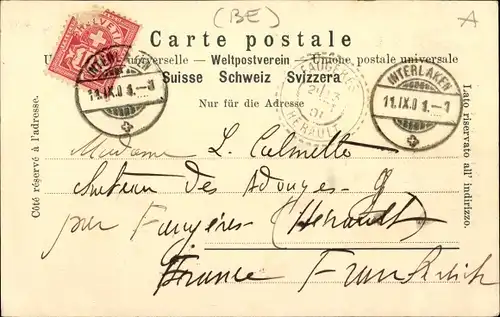 (BE)
A
Carte postale
Union postale universelle — Weltpostverein — Unione postale universale
Suisse Schweiz Svizzera
Nur für die Adresse
HELVETIA
INTERLAKEN
11.IX.01.-3
HERAULT
INTERLAKEN
11.IX.01.-1
Côté réservé à l'adresse.
Lato riservato all' indirizzo.
Madame L. Calmette
des
par Faugères (Hérault)
France Frankreich